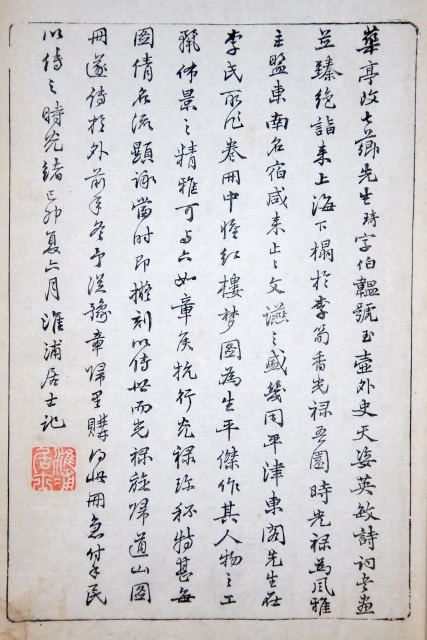 華亭改七薌先生琦字伯韞號玉壺外史天姿英敏詩詞書畫
並臻絶詣來上海下榻於李筍香光祿吾園時光祿為風雅
主盟東南名宿咸來止止文讌之盛幾同平津東閣先生在
李氏所作卷冊中惟紅樓夢圖為生平傑作其人物之工
麗佈景之精雅可與六如章矦抗行光祿珍秘特甚每
圖倩名流題詠當時即擬刻以傳世而光祿旋歸道山圖
冊遂傳於外前年冬予從豫章歸里購得此冊急付手民
以傳之時光緒己卯夏六月淮浦居士記
淮浦居士